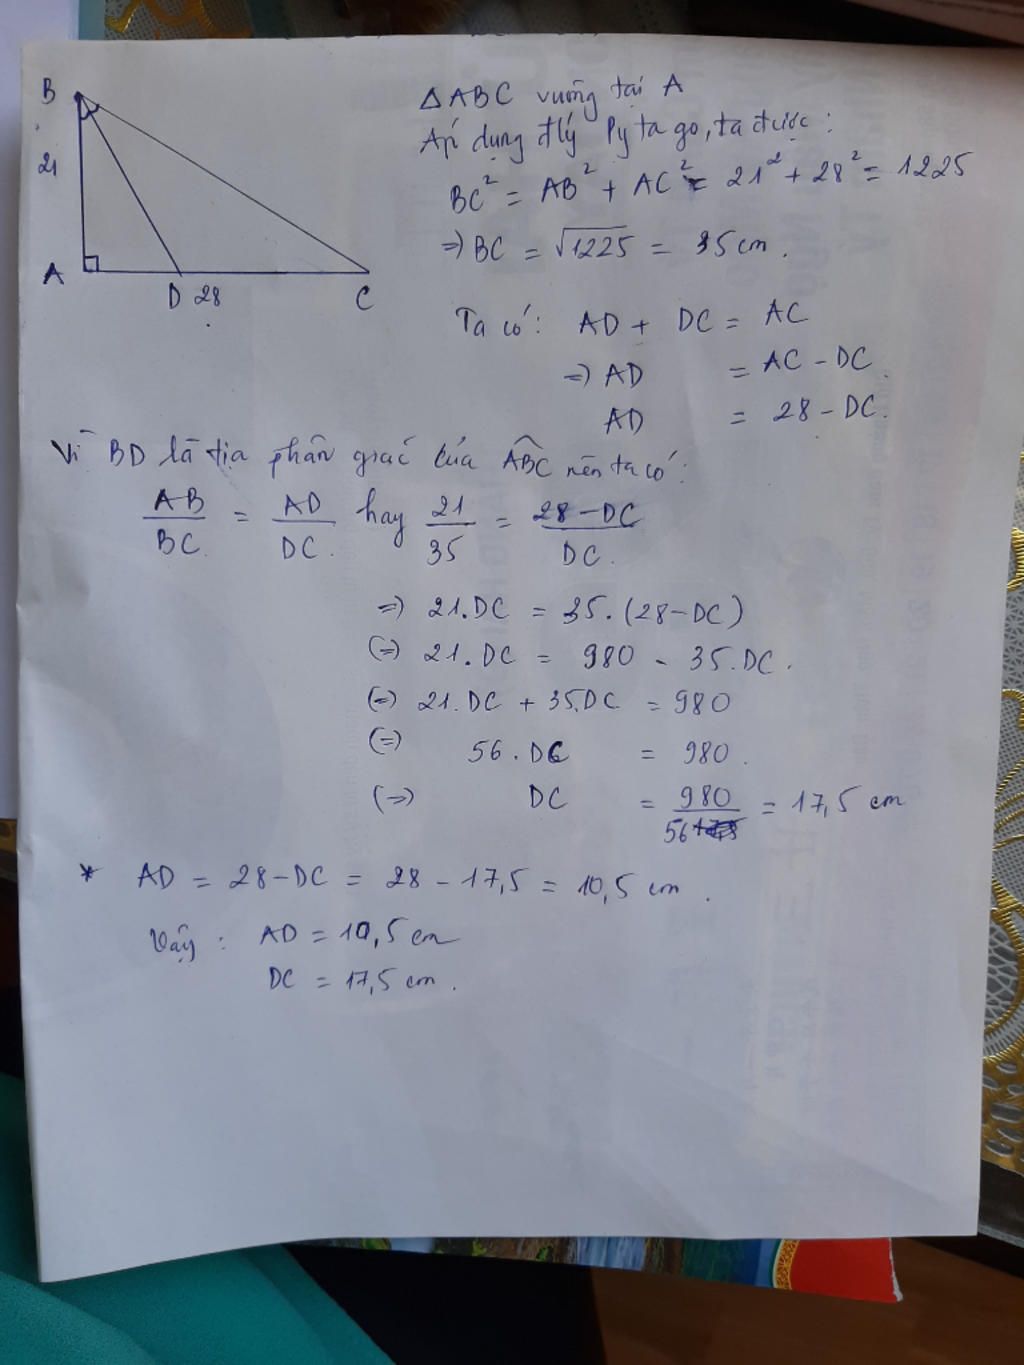 B
21
A
D 28
C
△ABC vuông tại A
Áp dụng đlý Pytago, ta được:
BC² = AB² + AC² = 21² + 28² = 1225
=> BC = √1225 = 35 cm.
Ta có: AD + DC = AC
=> AD = AC - DC.
AD = 28 - DC.
Vì BD là tia phân giác của ABC nên ta có:
AB/BC. = AD/DC. hay 21/35 = 28-DC/DC.
=> 21.DC = 35.(28-DC)
(=) 21.DC = 980 - 35.DC.
(=) 21.DC + 35.DC = 980
(=) 56.DC = 980.
(=>) DC = 980/56 = 17,5 cm
* AD = 28-DC = 28 - 17,5 = 10,5 cm.
Vậy: AD = 10,5 cm
DC = 17,5 cm.